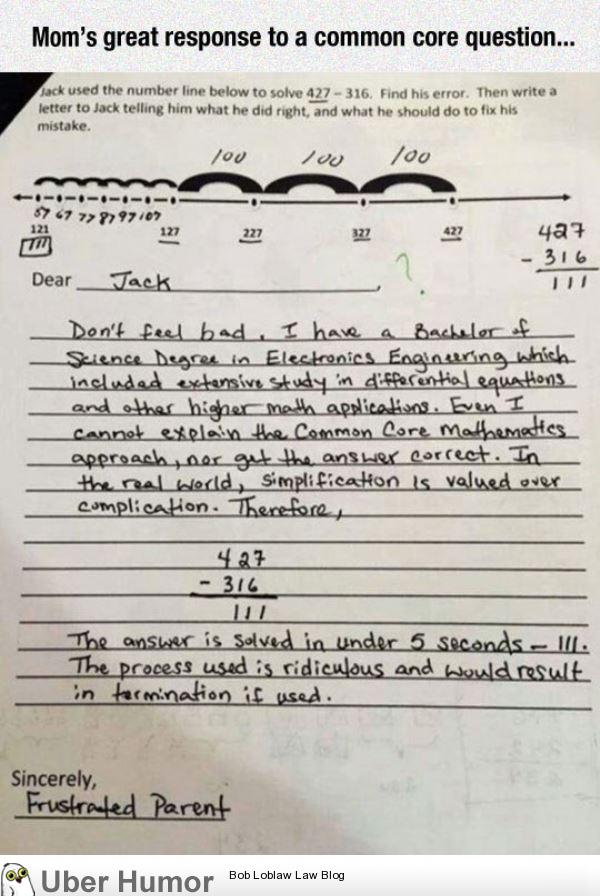 Mom's great response to a common core question...
Jack used the number line below to solve 427 – 316. Find his error. Then write a
letter to Jack telling him what he did right, and what he should do to fix his
mistake.
100 100 100
57 67 77 87 97 107
121 127 227 327 427
111
427
- 316
111
Dear Jack,
?
Don't feel bad. I have a Bachelor of
Science Degree in Electronics Engineering which
included extensive study in differential equations
and other higher math applications. Even I
cannot explain the Common Core Mathematics
approach, nor get the answer correct. In
the real world, simplification is valued over
complication. Therefore,
427
- 316
111
The answer is solved in under 5 seconds – 111.
The process used is ridiculous and would result
in termination if used.
Sincerely,
Frustrated Parent
Uber Humor
Bob Loblaw Law Blog